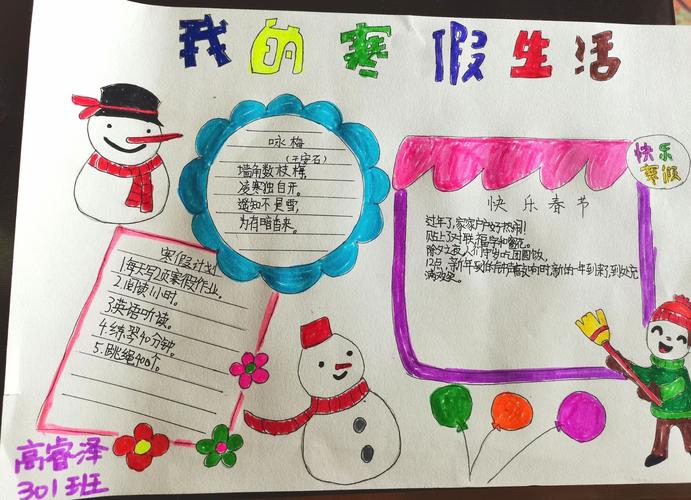 我的寒假生活
咏梅
(王安石)
墙角数枝梅,
凌寒独自开。
遥知不是雪,
为有暗香来。
快乐
寒假
快乐春节
过年了,家家户户好热闹!
贴上了对联,福字和窗花。
除夕之夜,人们
团圆饭,
12点,新年到的
时,新的一年到来了,到处充
满欢笑。
寒假计划
1.每天写2页寒假作业。
2.阅读1小时。
3.英语听读。
4.练琴40分钟。
5.跳绳400个。
高睿泽
301班